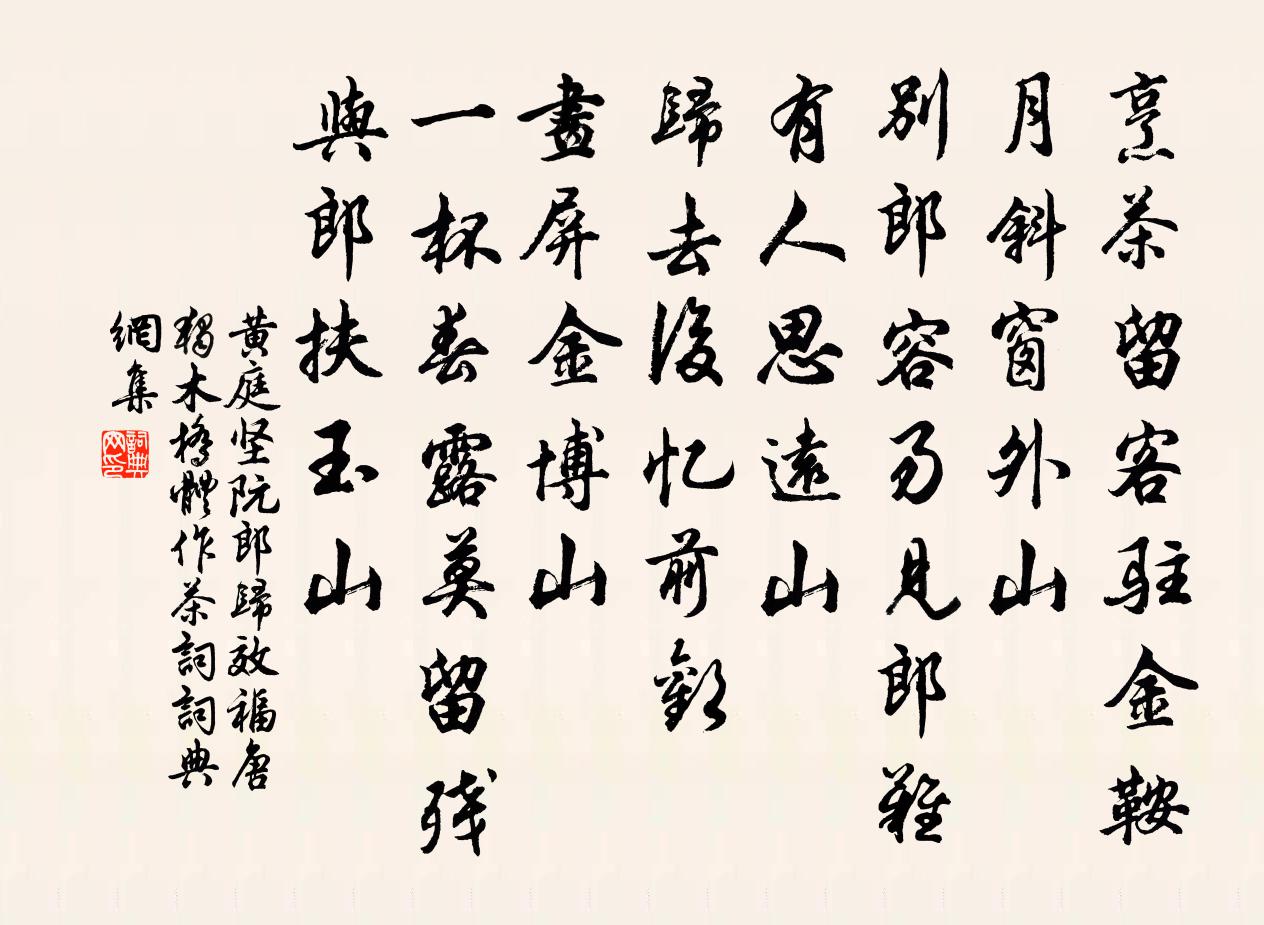 烹茶留客駐金鞍
月斜窗外山
別郎容易見郎難
有人思遠山
歸去後忆前歡
畫屏金博山
一杯春露莫留残
與郎扶玉山
黄庭坚阮郎歸效福唐
獨木橋體作茶詞詞典
網集
詞典網印